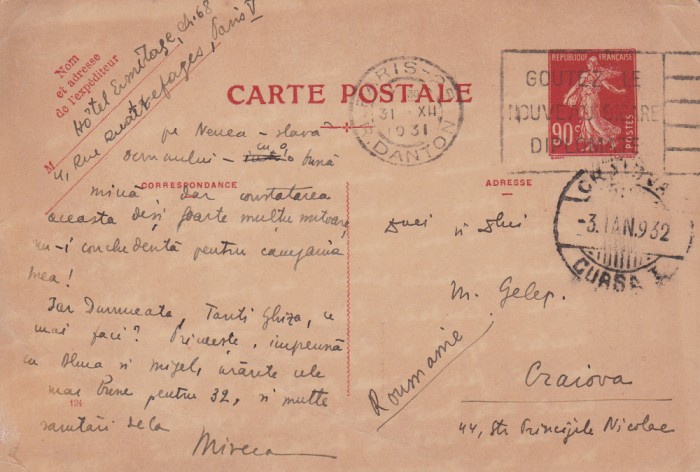 Nom
et adresse
de l'expéditeur
M
Hôtel Ermitage, ch. 68
4, rue Quatrefages, Paris V
CARTE POSTALE
PARIS-25
31 XII
1931
R. DANTON
GOUTEZ LE
NOUVEAU
RÉPUBLIQUE FRANÇAISE
90c
POSTES
CRAIOVA
-3. IAN. 932
CURSA I
CORRESPONDANCE
ADRESSE
pe Nenea - slavă
Domnului - cu o bună
mină dar constatarea
aceasta deși foarte mulțumitoare
nu-i concludentă pentru campania
mea!
Iar Dumneata, Tanti Ghiza, ce
mai faci? Primește, împreună
cu și Mișel, urările cele
mai bune pentru 32, și multe
sărutări de la
Mircea
194
Dnei și Dlui
M. Gelep.
Craiova
44, Str Principile Nicolae
Roumanie